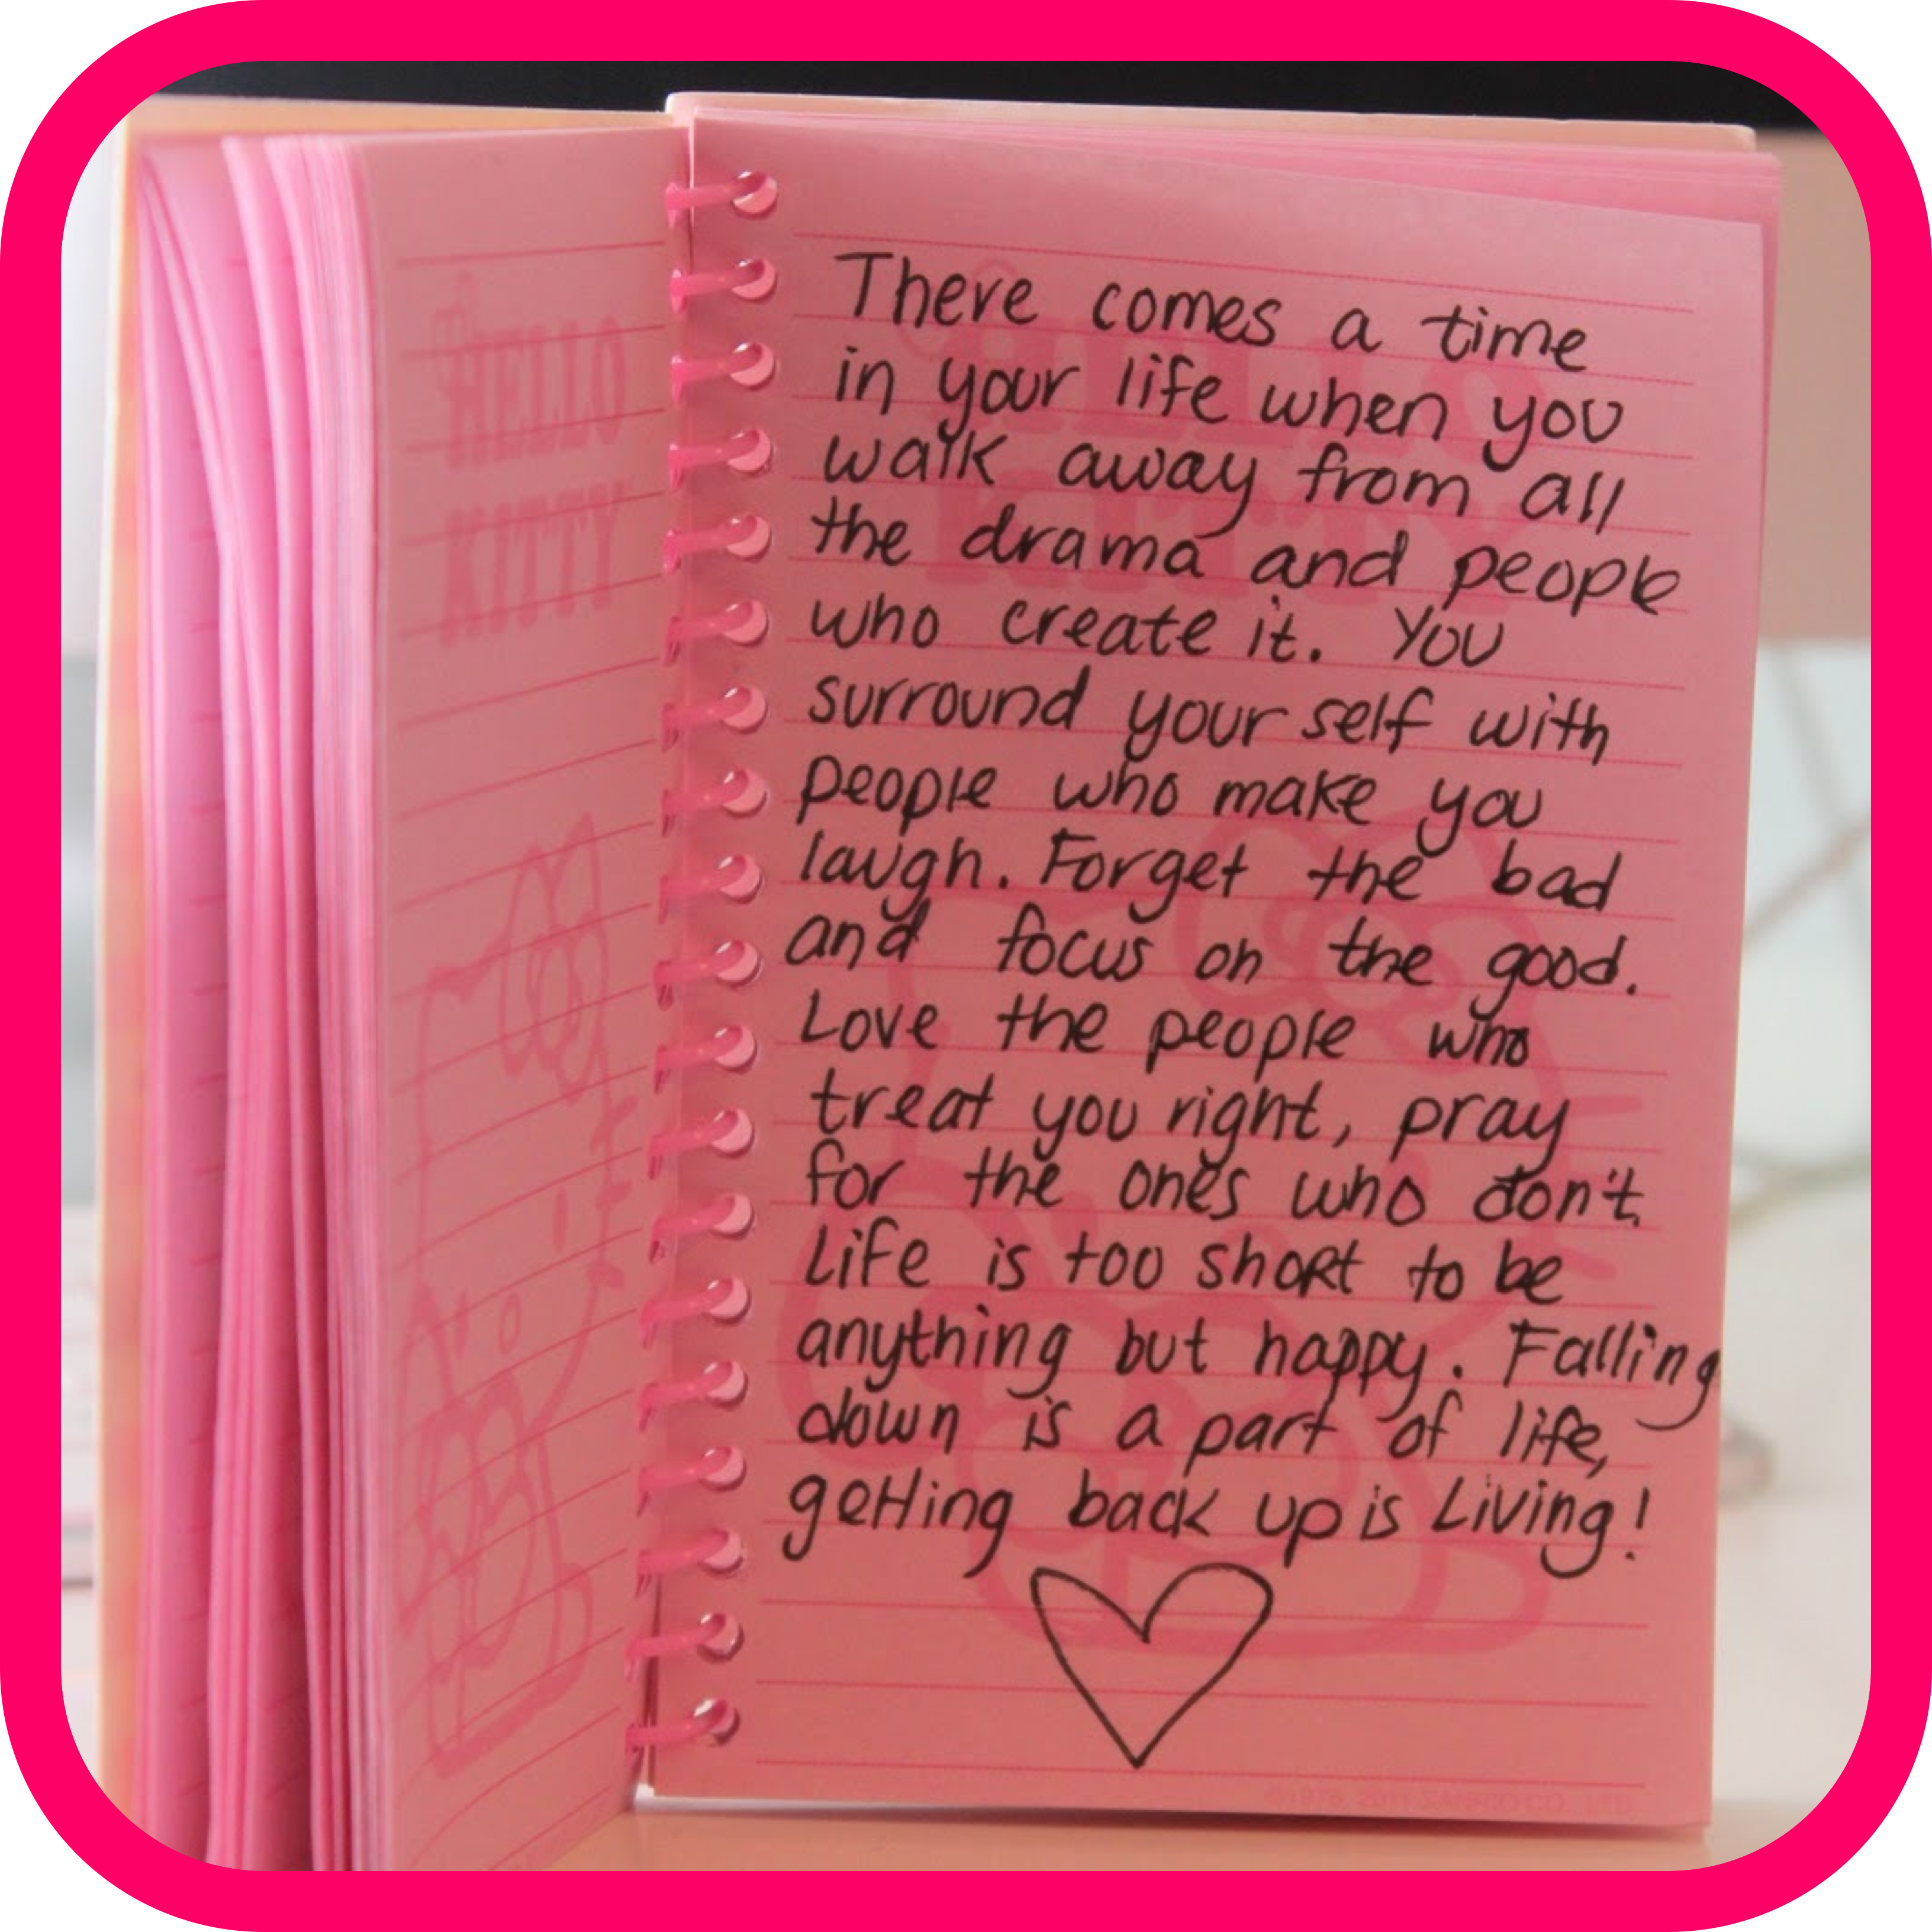 HELLO
KITTY
There comes a time
in your life when you
walk away from all
the drama and people
who create it. You
surround your self with
people who make you
laugh. Forget the bad
and focus on the good.
Love the people who
treat you right, pray
for the ones who don't.
Life is too short to be
anything but happy. Falling
down is a part of life,
getting back up is Living!
HELLO
KITTY
©1976, 2011 SANRIO CO., LTD.